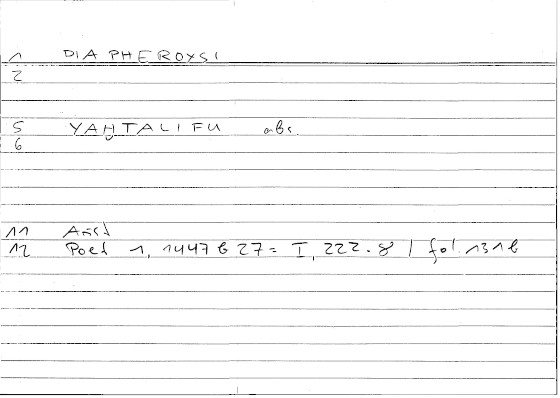 1 DIAPHEROYSI
2
5 YAḪTALIFU abs.
6
11 Arist
12 Poet 1, 1447 b 27 = I, 222.8 | fol. 131b